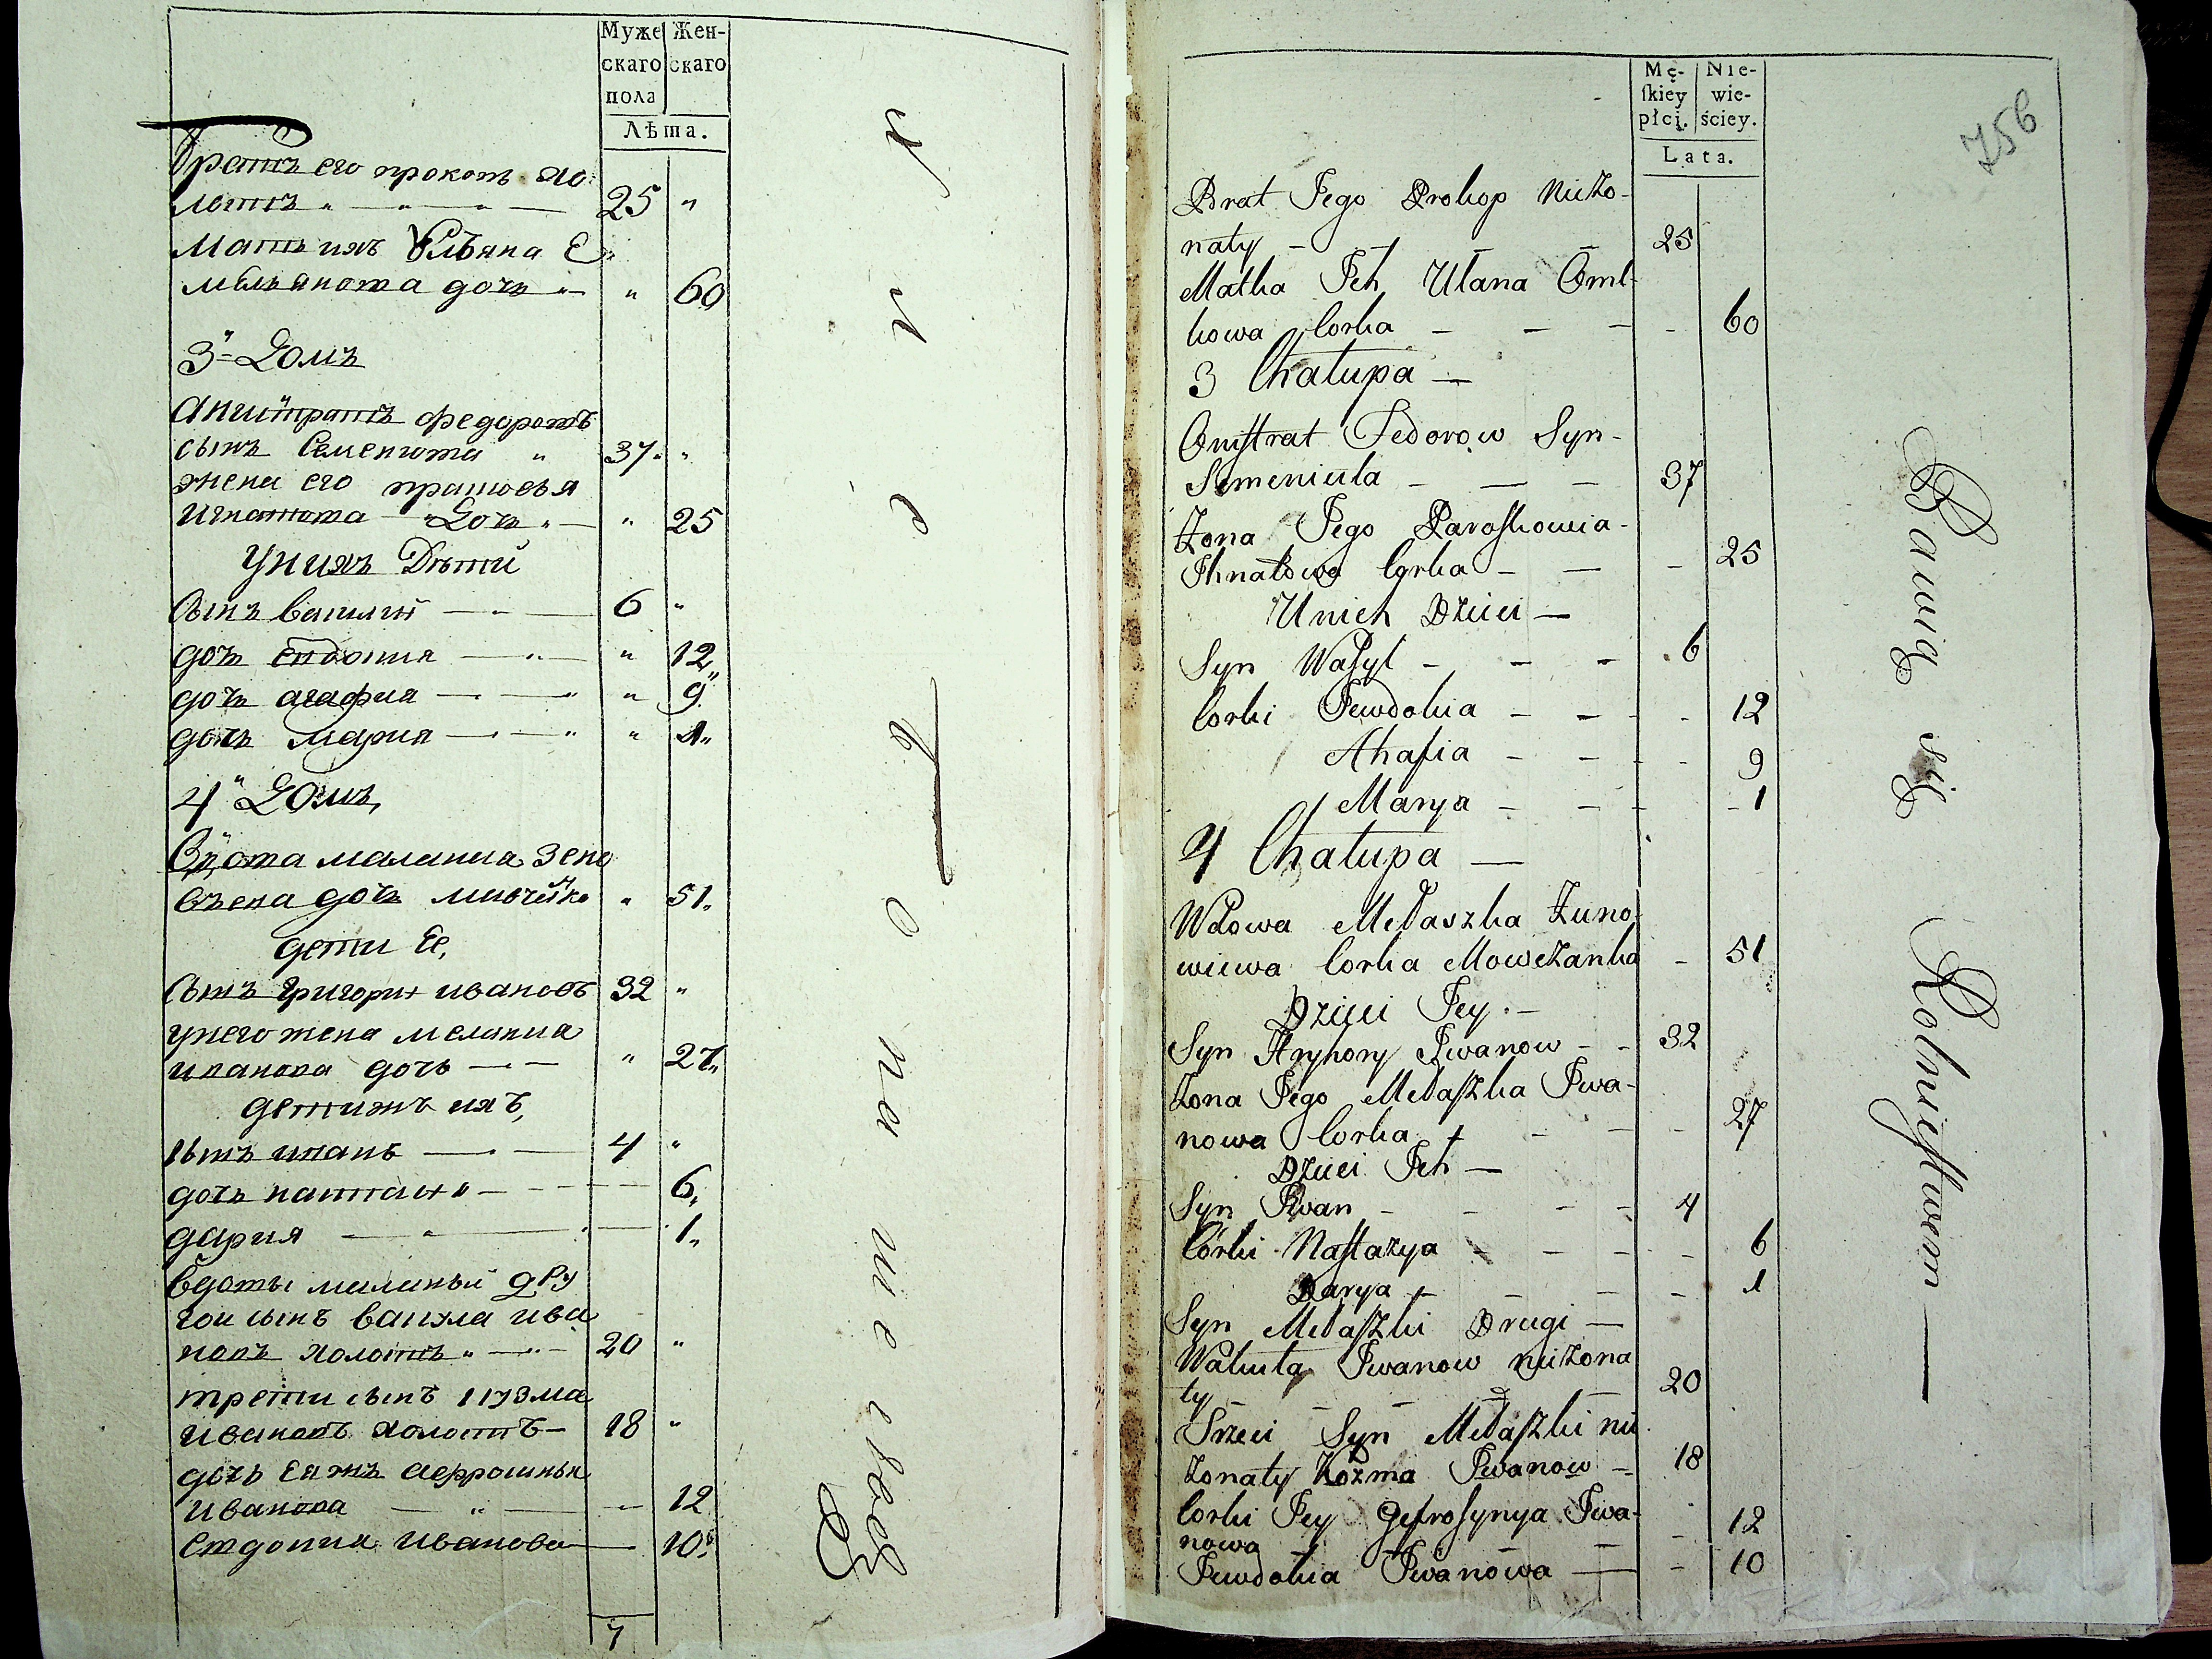 Муже Жен-
скаго скаго
пола
Лѣта.
Братъ его прокопъ хо
лотъ 25 "
Мать ихъ Ульяна Е
мельянова дочь " 60
3 Домъ
Анистратъ федоровъ
сынъ Семенюта " 37 "
жена его
Дочь " 25
У них Дѣти
Сынъ василий 6 "
дочь евдокия " 12
дочь агафия " 9
дочь мария " 1
4 Домъ
Вдова малания Зено
вьева дочь " 51
дети Ее,
Сынъ григории ивановъ 32 "
у него жена мелания
иванова дочь " 27
дети ихъ
сынъ иванъ 4 "
дочь 6
дария 1
Вдовы миланьи дру
гои сынъ вакула ива
новъ холотъ 20 "
трети сынъ кузма
ивановъ холотъ 18 "
дочь
иванова 12
евдокия иванова 10
7
Mę- Nie-
skiey wie-
płci. ściey.
Lata.
756
Brat Jego Prokop Nieżo-
naty 25
Matka Ich Ulana Oml-
kowa Corka 60
3 Chałupa
Onistrat Fedorow Syn
Semeniuta 37
Żona Jego Paraskowia
Ihnatowa Corka 25
U nich Dzieci
Syn Wasyl 6
Corki Jewdokia 12
Ahafia 9
Marya 1
4 Chałupa
Wdowa Mełaszka Zuno-
wiewa Corka 51
Dzieci Jey
Syn Hryhory Iwanow 32
Żona Jego Mełaszka Iwa-
nowa Corka 27
Dzieci Ich
Syn Iwan 4
Córki Nastazya 6
Darya 1
Syn Mełaszki Drugi
Wakuła Iwanow nieżona
ty 20
Trzeci Syn Mełaszki nie
żonaty Kozma Iwanow 18
Corki Jey Gefrosynya Iwa-
nowa 12
Jewdokia Iwanowa 10
Bawią się Rolnictwem